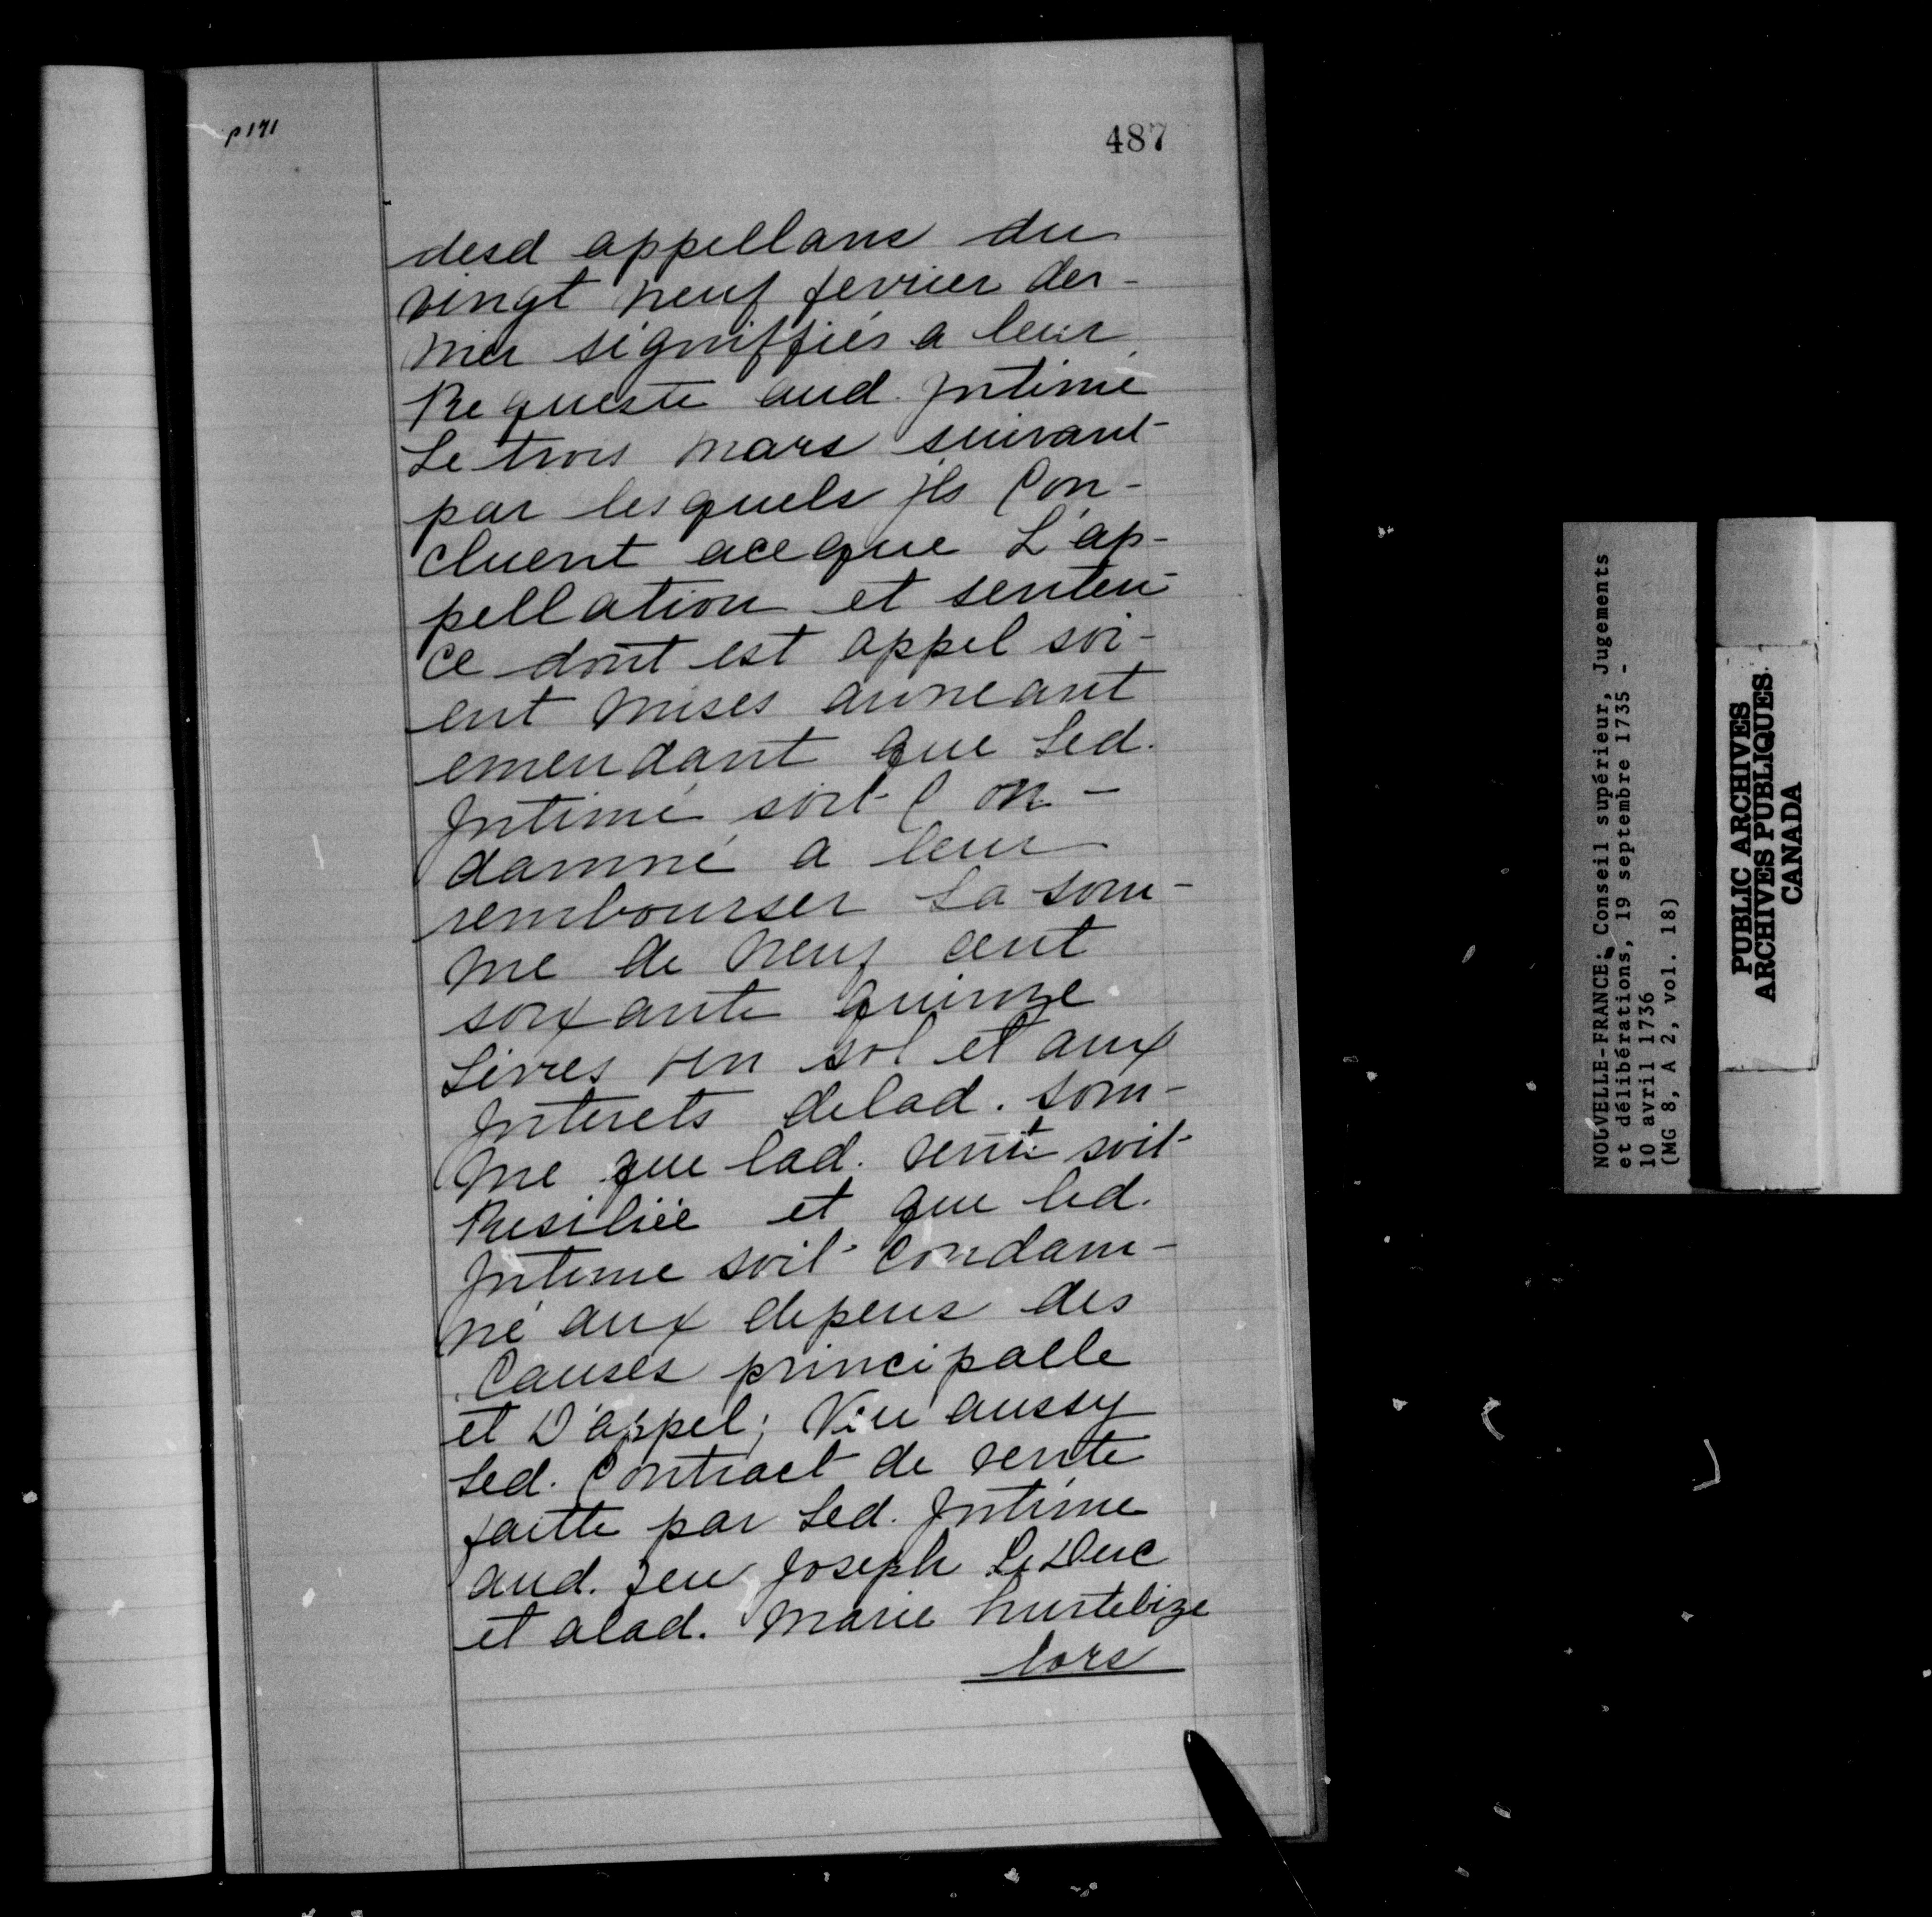 p 171
487
desd appellans du
vingt neuf fevrier der-
nier signiffiés a leur
Requeste aud. Jntimé
Le trois mars suivant
par lesquels jls Con-
cluent aceque L'ap-
pellation et senten-
ce dont est appel soi-
ent mises auneant
emendant que Led.
Jntimé soit Con-
damné a leur
rembourser La som-
me de neuf cent
soixante quinze
Livres un sol et aux
Jnterets delad. som-
me que lad. vente soit
Resiliée et que led.
Jntimé soit condam-
né aux depens des
Causes principalle
et D'appel; Veu aussy
Led. Contract de vente
faitte par Led. Jntimé
aud. feu Joseph LeDuc
et alad. Marie hurtebize
lors
NOUVELLE-FRANCE: Conseil supérieur, Jugements
et délibérations, 19 septembre 1735 -
10 avril 1736
(MG 8, A 2, vol. 18)
PUBLIC ARCHIVES
ARCHIVES PUBLIQUES
CANADA